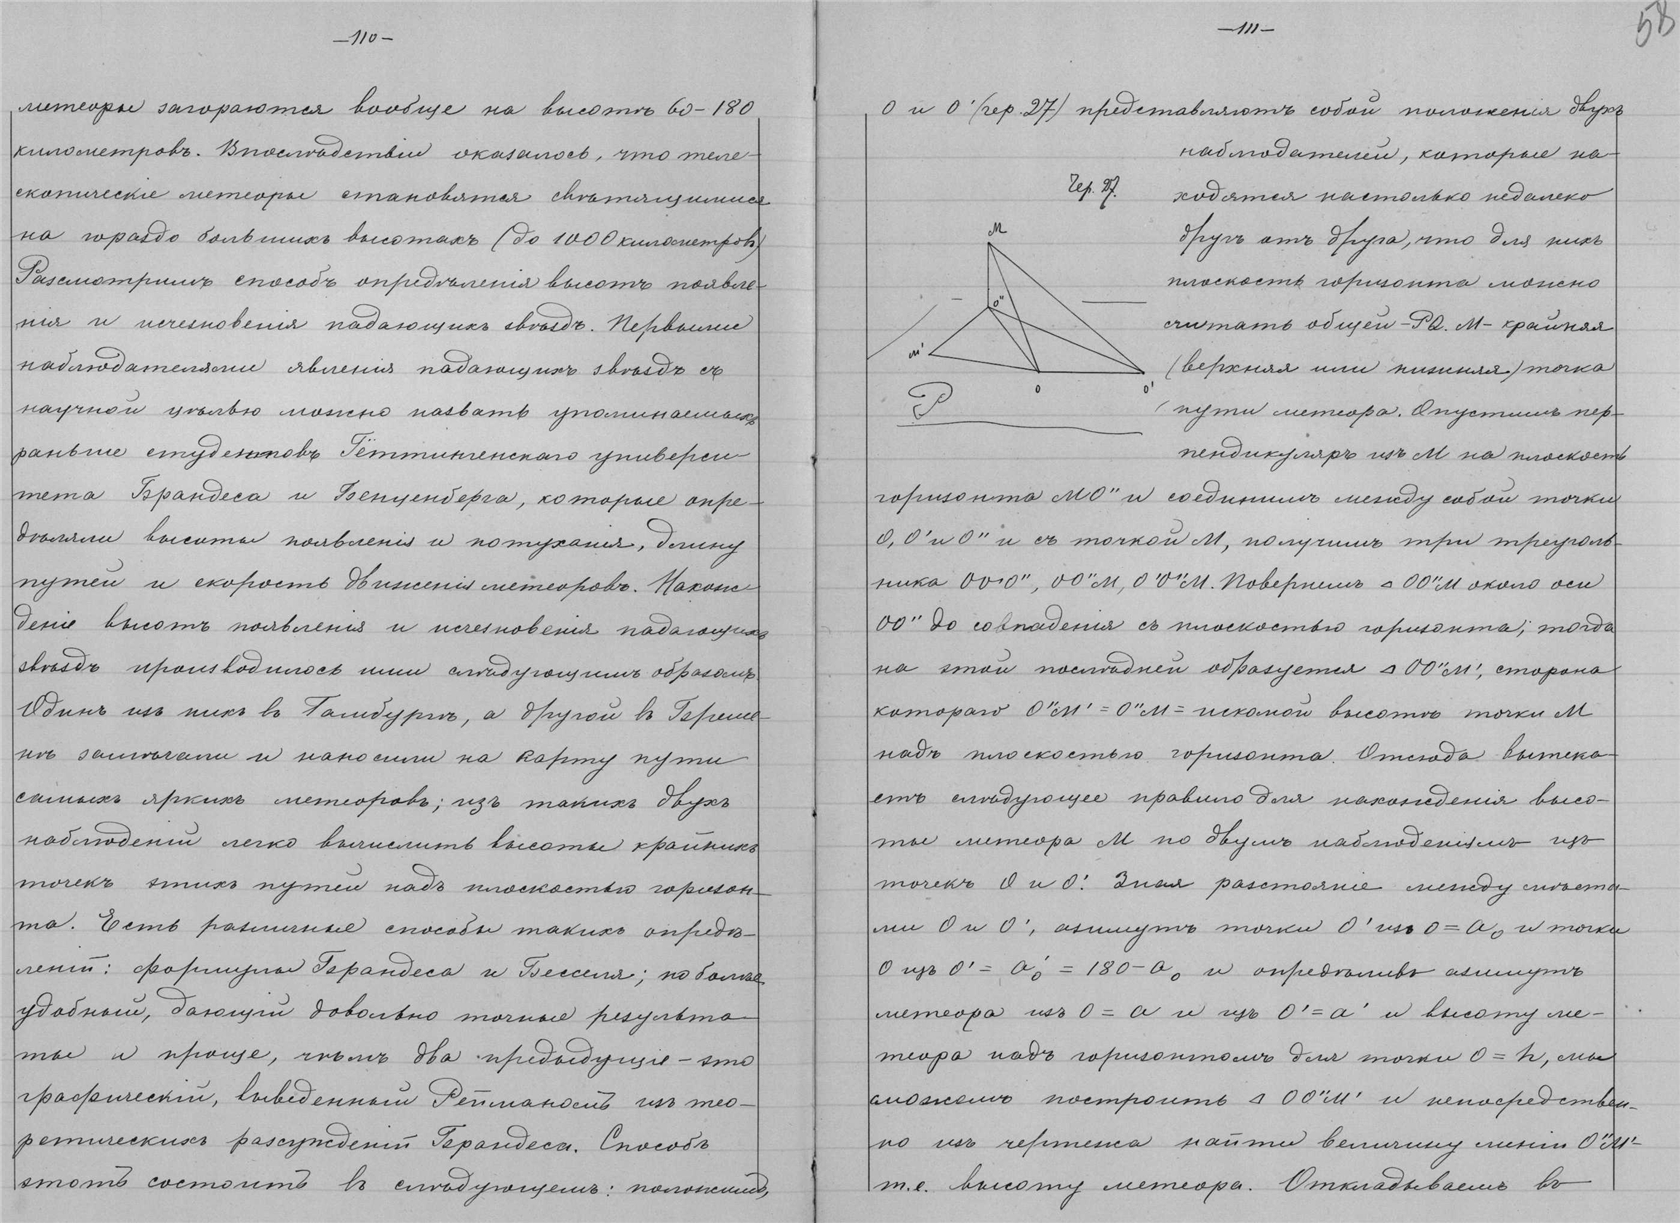 —110—
метеоры загораются вообще на высотѣ 60–180
километровъ. Впослѣдствіи оказалось, что теле-
скопическіе метеоры становятся свѣтящимися
на гораздо большихъ высотахъ (до 1000 километровъ)
Разсмотримъ способъ опредѣленія высотъ появле-
нія и исчезновенія падающихъ звѣздъ. Первыми
наблюдателями явленія падающихъ звѣздъ съ
научной цѣлью можно назвать упоминаемыхъ
раньше студентовъ Гёттингенскаго универси-
тета Брандеса и Бенценберга, которые опре-
дѣляли высоты появленія и потуханія, длину
путей и скорость движенія метеоровъ. Нахож-
деніе высотъ появленія и исчезновенія падающихъ
звѣздъ производилось ими слѣдующимъ образомъ.
Одинъ изъ нихъ въ Гамбургѣ, а другой въ Бреме-
нѣ замѣчали и наносили на карту пути
самыхъ яркихъ метеоровъ; изъ такихъ двухъ
наблюденій легко вычислить высоты крайнихъ
точекъ этихъ путей надъ плоскостью горизон-
та. Есть различные способы такихъ опредѣ-
леній: формулы Брандеса и Бесселя; но болѣе
удобный, дающій довольно точные результа-
ты и проще, чѣмъ два предыдущіе – это
графическій, выведенный Рейманомъ изъ тео-
ретическихъ разсужденій Брандеса. Способъ
этотъ состоитъ въ слѣдующемъ: положимъ,
—111—
58
O и O' (чер. 27) представляютъ собой положенія двухъ
наблюдателей, которые на-
ходятся настолько недалеко
другъ отъ друга, что для нихъ
плоскость горизонта можно
считать общей – PQ. M – крайняя
(верхняя или нижняя) точка
пути метеора. Опустимъ пер-
пендикуляръ изъ M на плоскость
Чер. 27.
M
O"
M'
O
O'
P
горизонта MO" и соединимъ между собой точки
O, O' и O" и съ точкой M, получимъ три треуголь-
ника OO'O", OO"M, O'O"M. Повернемъ △ OO"M около оси
OO" до совпаденія съ плоскостью горизонта; тогда
на этой послѣдней образуется △ OO"M', сторона
котораго O"M' = O"M = искомой высотѣ точки M
надъ плоскостью горизонта. Отсюда вытека-
етъ слѣдующее правило для нахожденія высо-
ты метеора M по двумъ наблюденіямъ изъ
точекъ O и O'. Зная разстояніе между мѣста-
ми O и O', азимутъ точки O' изъ O = a₀ и точки
O изъ O' = a₀' = 180 – a₀ и опредѣливъ азимутъ
метеора изъ O = a и изъ O' = a' и высоту ме-
теора надъ горизонтомъ для точки O = h, мы
сможемъ построить △ OO"M' и непосредствен-
но изъ чертежа найти величину линіи O"M' –
т.е. высоту метеора. Откладываемъ въ